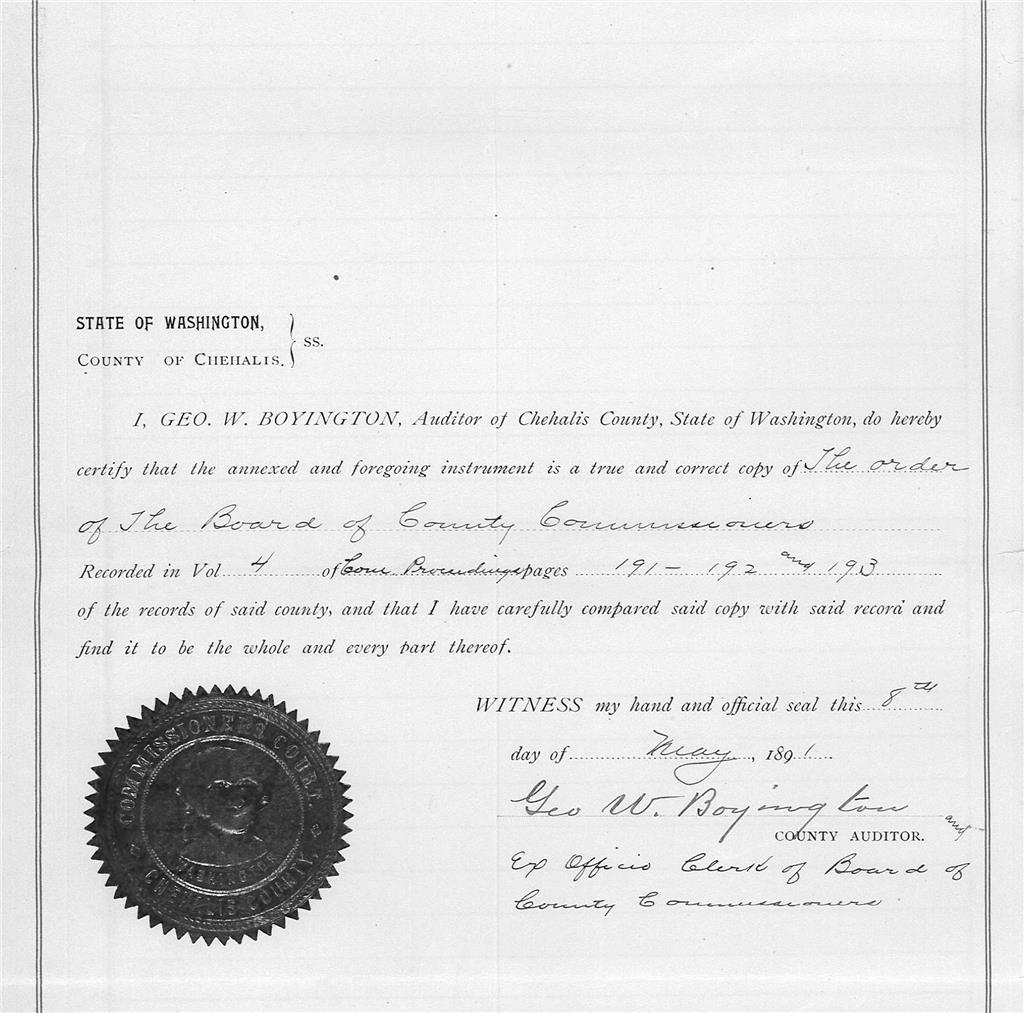 STATE OF WASHINGTON,
COUNTY OF CHEHALIS. } SS.
I, GEO. W. BOYINGTON, Auditor of Chehalis County, State of Washington, do hereby
certify that the annexed and foregoing instrument is a true and correct copy of The order
of The Board of County Commissioners
Recorded in Vol 4 of Com Proceedings pages 191 - 192 and 193
of the records of said county, and that I have carefully compared said copy with said record and
find it to be the whole and every part thereof.
WITNESS my hand and official seal this 8TH
day of May, 1891
Geo W. Boyington
COUNTY AUDITOR. and
Ex Officio Clerk of Board of
County Commissioners
COMMISSIONERS COURT.
WASHINGTON
CHEHALIS COUNTY.